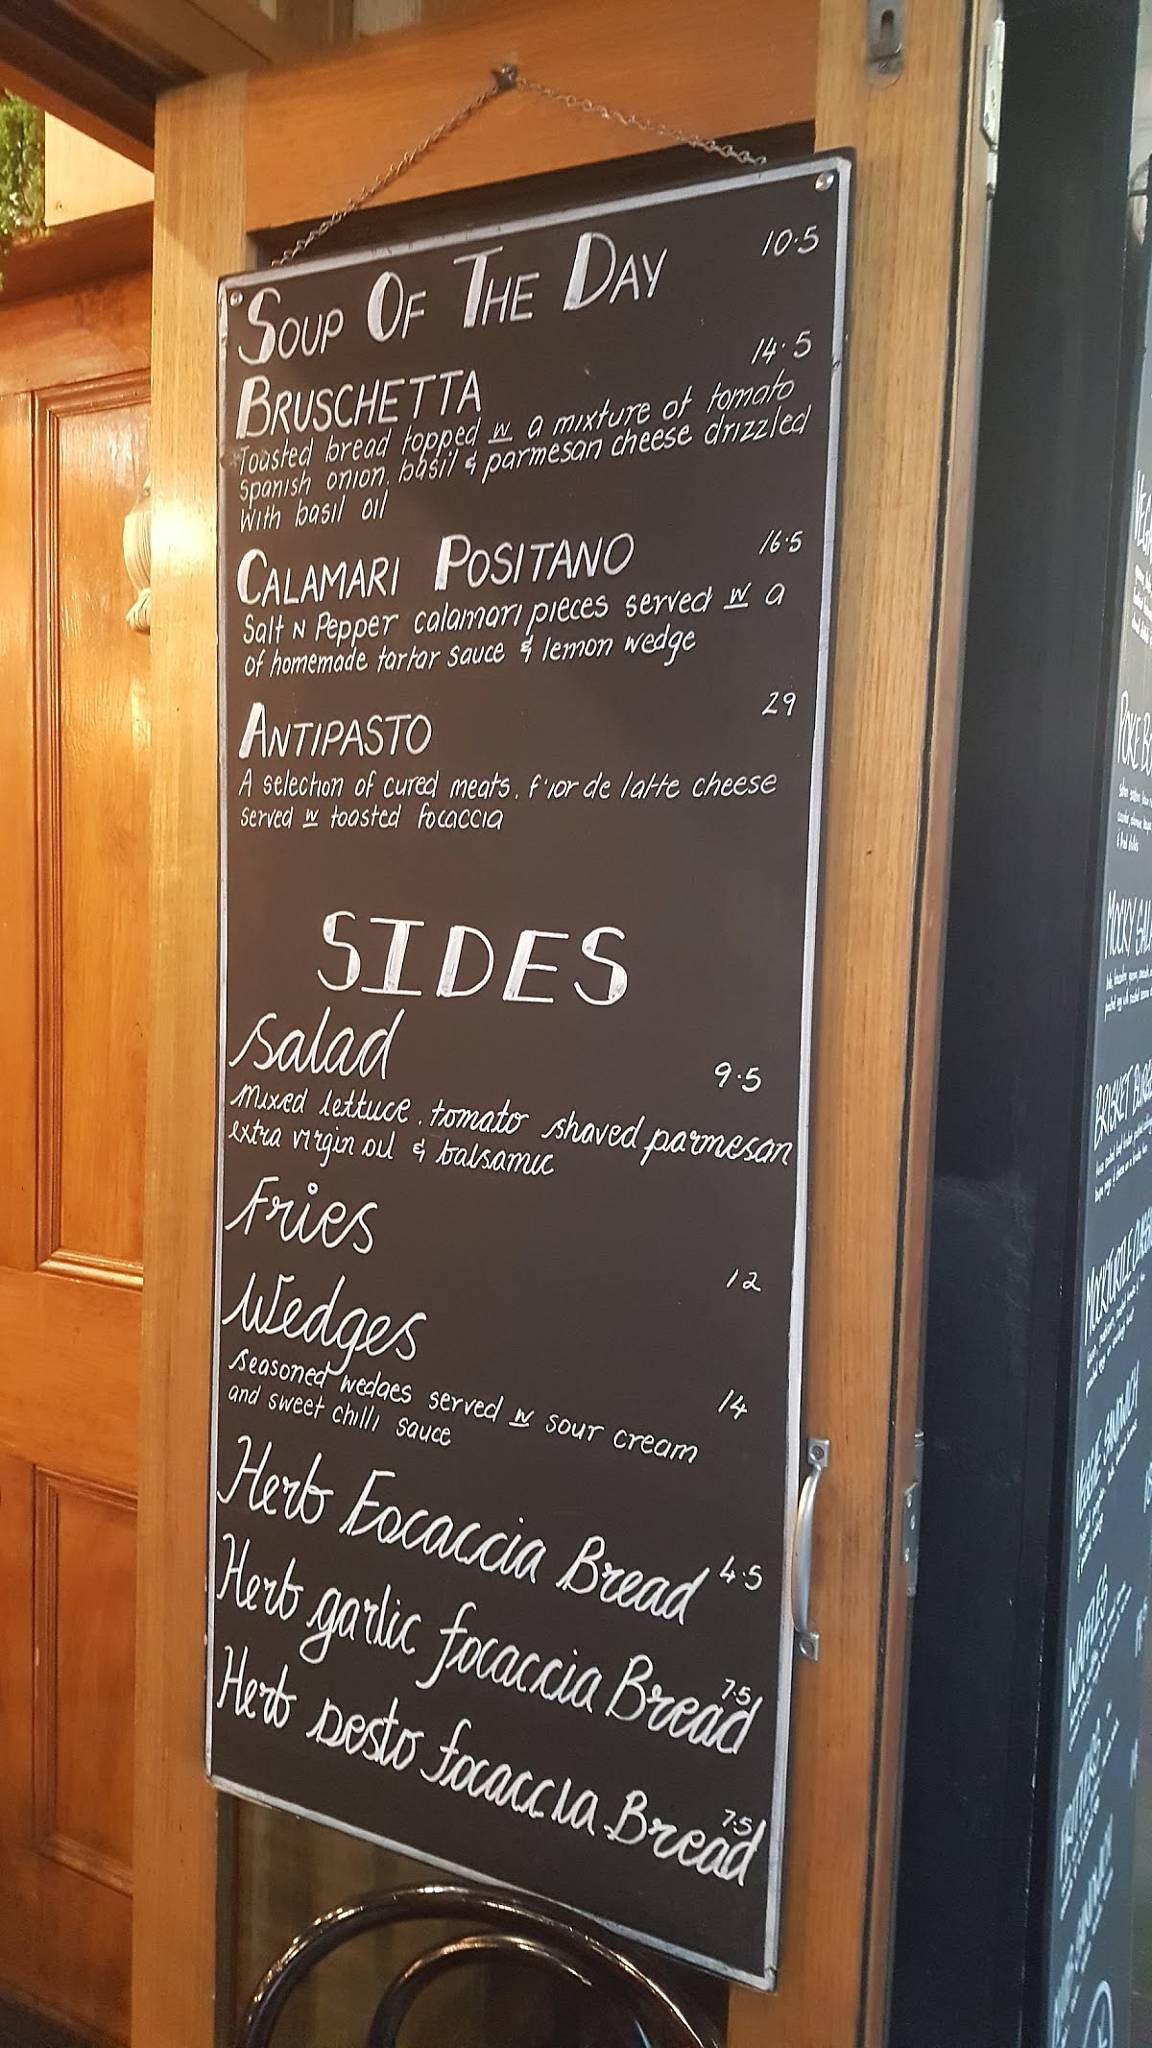 SOUP OF THE DAY 10.5
BRUSCHETTA 14.5
Toasted bread topped w a mixture of tomato
Spanish onion. basil & parmesan cheese drizzled
With basil oil
CALAMARI POSITANO 16.5
Salt N Pepper calamari pieces served w a
of homemade tartar sauce & lemon wedge
ANTIPASTO 29
A selection of cured meats. fior de latte cheese
served w toasted focaccia
SIDES
Salad 9.5
mixed lettuce. tomato shaved parmesan
extra virgin oil & balsamic
Fries 12
Wedges 14
seasoned wedges served w sour cream
and sweet chilli sauce
Herb Focaccia Bread 4.5
Herb garlic focaccia Bread 7.5
Herb pesto focaccia Bread 7.5
POKE
MOCKY
BRISKET
MOCKTURTLE
VEGGIE SANDWICH
WAFFLES